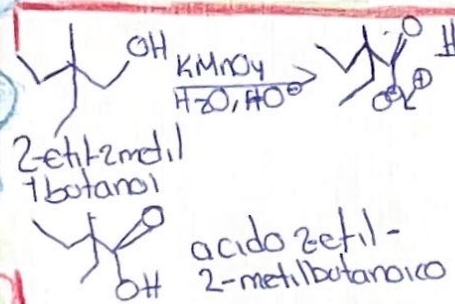 OH KMnO4 O H
H2O, HO⊖ O⊖ K⊕
2-etil-2metil
1butanol
O
OH
acido 2-etil-
2-metilbutanoico